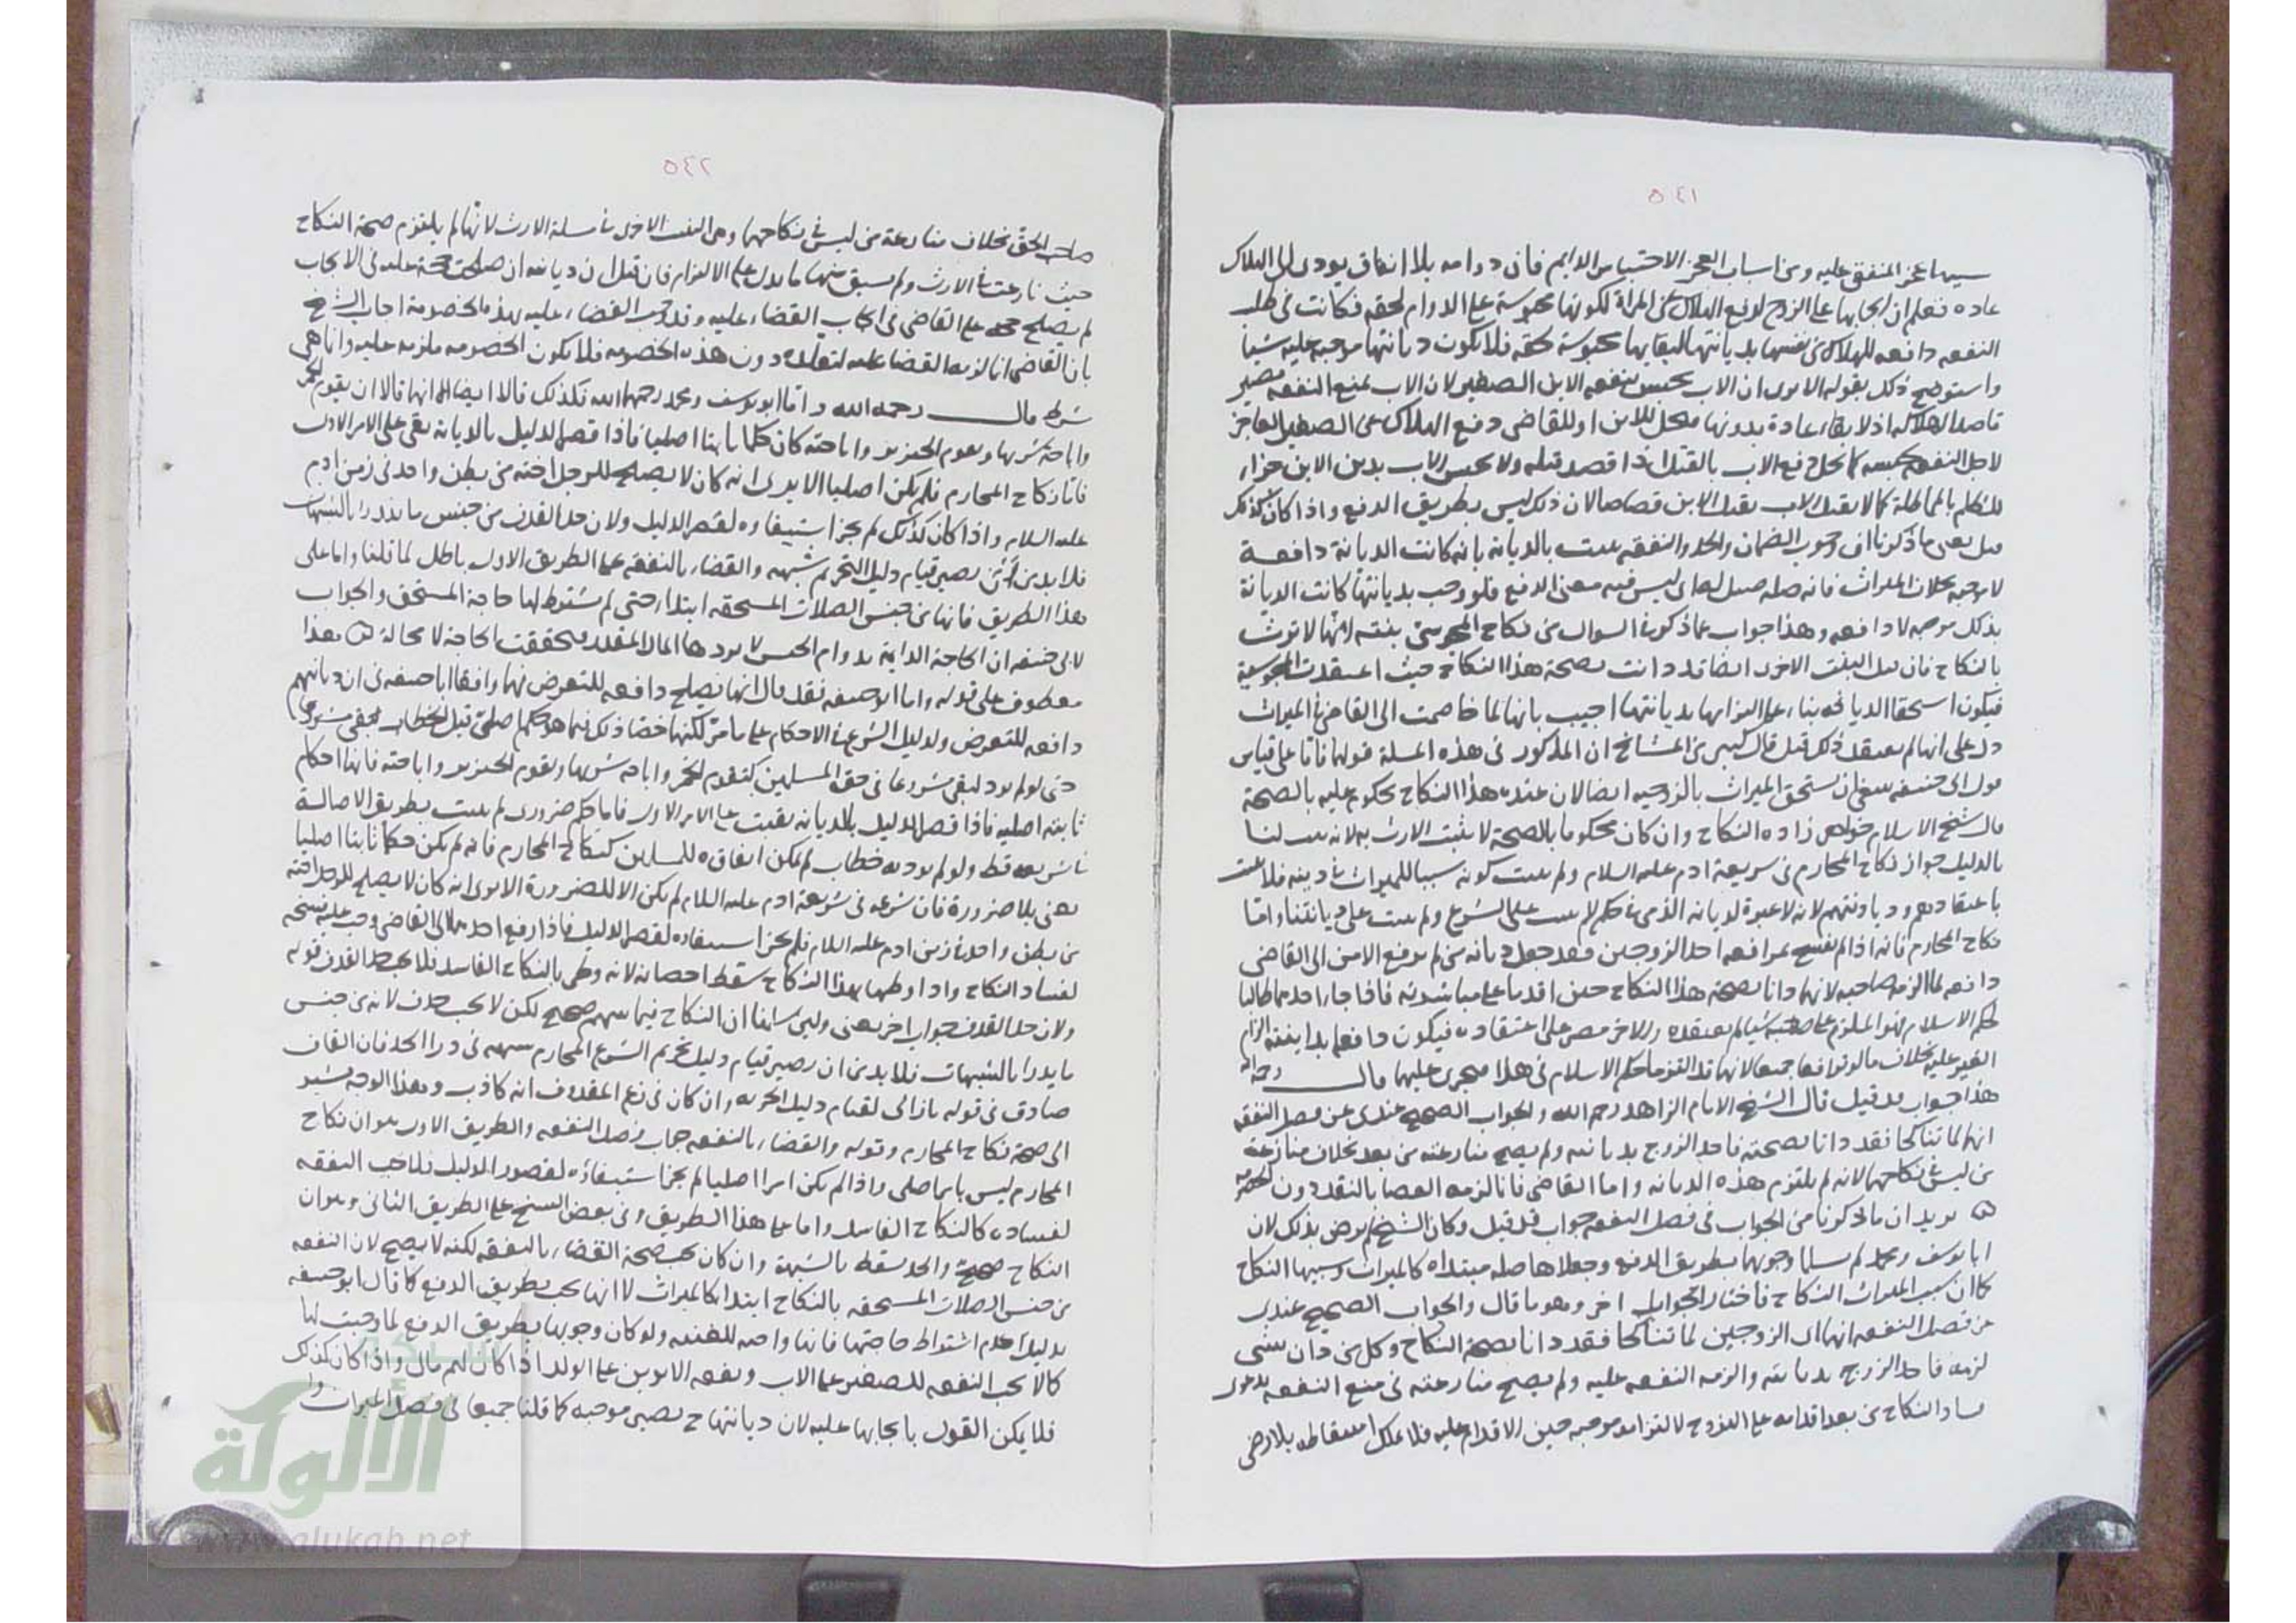 ٥٤١
سيما عجز المنفق عليه ومن اسباب العجز الاحتباس الدايم فان دوامه بلا انفاق يودى الى الهلاك
عادة فعلم ان ايجابها على الزوج لدفع الهلاك عن المراة لكونها محبوسة على الدوام لحقه فكانت فى طلب
النفقه دافعه للهلاك عن نفسها بديانتها لبقايها محبوسة لحقه فلا يكون ديانتها موجبه عليه شيا
واستوضح ذلك بقوله الا يرى ان الاب يحبس بنفقه الابن الصغير لان الاب بمنع النفقه يصير
قاصدا لاهلاكه اذ لا بقاء عادة بدونها فيحل للابن او للقاضى دفع الهلاك عن الصغير العاجز
لاجل النفقه بحبسه كما يحل دفع الاب بالقتل اذا قصد قتله ولا يحبس الاب بدين الابن جزاء
للظلم بالمماطلة كما لا يقتل الاب بقتل الابن قصاصا لان ذلك ليس بطريق الدفع واذا كان كذلك
بطل بعض ما ذكرنا وجوب الضمان والحد والنفقه يثبت بالديانه بانه كانت الديانة دافعة
لا موجبه بخلاف الميراث فانه صله ليس فيه معنى الدفع فلو وجب بديانتها كانت الديانة
بذلك موجبه لا دافعه وهذا جواب عما ذكر فى السوال من نكاح المجوسى بنته لانها لا ترث
بالنكاح فان قيل البنت الاخرى ايضا قد دانت بصحة هذا النكاح حيث اعتقدت المجوسية
فيكون استحقاق الديانه بناء على التزامها بديانتها اجيب بانها لما خاصمت الى القاضى فى الميراث
دل على انها لم تعتقد ذلك قيل قال كثير من المشائخ ان المذكور فى هذه المسلة قولهما فاما على قياس
قول ابى حنيفه ينبغى ان تستحق الميراث بالزوجيه ايضا لان عنده هذا النكاح محكوم عليه بالصحة
قال شيخ الاسلام خواهر زاده النكاح وان كان محكوما بالصحة لا يثبت الارث به لانه يثبت لنا
بالدليل جواز نكاح المحارم فى شريعة ادم عليه السلام ولم يثبت كونه سببا للميراث فى دينه فلا يثبت
باعتقادهم وديانتهم لانه لا عبرة لديانه الذمى فى حكم لم يثبت على الشرع ولم يثبت على ديانتنا واما
نكاح المحارم فانه اذا لم يفسخ بمرافعه احد الزوجين فقد جعل ديانه من لم يرفع الامر الى القاضى
دافعه لما الزمه صاحبه لانهما دانا بصحة هذا النكاح حين اقدما على مباشرته فاذا جاء احدهما طالبا
لحكم الاسلام فهو الملزم على صاحبه شيا لم يعتقده والاخر مصر على اعتقاده فيكون دافعا بديانته الزام
الغير عليه بخلاف ما لو ترافعا جميعا لانهما قد التزما حكم الاسلام فى هذا فيجرى عليهما قال رحمه الله
هذا جواب قد قيل قال الشيخ الامام الزاهد رحمه الله والجواب الصحيح عندى عن فصل النفقه
انهما لما تناكحا فقد دانا بصحته فاخذ الزوج بديانته ولم يصح منازعته من بعد بخلاف منازعة
من ليس فى نكاحهما لانه لم يلتزم هذه الديانه واما القاضى فانما لزمه القضا بالتقلد دون الخصومه
ش يريد ان ما ذكرنا من الجواب فى فصل النفقه جواب قد قيل وكان الشيخ لم يرض بذلك لان
ابا يوسف ومحمد لم يسلما وجوبها بطريق الدفع وجعلاها صله مبتداه كالميراث وسببها النكاح
كما ان سبب الميراث النكاح فاختار لجوابها اخر وهو ما قال والجواب الصحيح عندى
عن فصل النفقه انهما اى الزوجين لما تناكحا فقد دانا بصحة النكاح وكل من دان بشى
لزمه فاخذ الزوج بديانته والزمه النفقه عليه ولم يصح منازعته فى منع النفقه بدعوى
فساد النكاح من بعد اقدامه على التزوج لالتزامه موجبه حين الاقدام عليه فلا يملك اسقاطه بلا رضى
٥٤٢
صاحب الحق بخلاف منازعة من ليس فى نكاحهما وهى البنت الاخرى فى مسلة الارث لانها لم يلتزم صحة النكاح
حيث نازعت فى الارث ولم يسبق منها ما يدل على الالتزام فان قيل ان ديانته ان صلحت حجة عليه فى الايجاب
لم يصلح حجه على القاضى فى ايجاب القضاء عليه وقد وجب القضاء عليه بهذه الخصومة اجاب الشيخ
بان القاضى انما لزمه القضا عليه لتقلده دون هذه الخصومه فلا يكون الخصومه ملزمه عليه وانما هى
شرط قال رحمه الله واما ابو يوسف ومحمد رحمهما الله فكذلك قالا ايضا الا انهما قالا ان تقوم الخمر
واباحة شربها وتقوم الخنزير واباحته كان حكما ثابتا اصليا فاذا قصر الدليل بالديانه بقى على الامر الاول
فاما نكاح المحارم فلم يكن اصليا الا يرى انه كان لا يصلح للرجل اخته من بطن واحد فى زمن ادم
عليه السلام واذا كان كذلك لم يجز استيفاوه لقصر الدليل ولان حد القذف من جنس ما يندرا بالشبهات
فلا بد من ان يصير قيام دليل التحريم شبهه والقضاء بالنفقه على الطريق الاول باطل لما قلنا واما على
هذا الطريق فانها من جنس الصلات المستحقه ابتداء حتى لم يشترط لها حاجة المستحق والجواب
لابى حنيفه ان الحاجة الدايمة بدوام الحبس لا يردها المال المقدر فتحققت الحاجة لا محالة ش هذا
معطوف على قوله واما ابو حنيفه فقد قال انها تصلح دافعه للتعرض فهما وافقا ابا حنيفه فى ان ديانتهم
دافعه للتعرض ولدليل الشرع فى الاحكام على ما مر لكنهما خصا ذلك فيما هو حكم اصلى قبل الخطاب
حتى لو لم يرد لبقى مشروعا فى حق المسلمين كتقوم الخمر واباحه شربها وتقوم الخنزير واباحته فانها احكام
ثابته اصليه فاذا قصر الدليل بالديانه بقيت على الامر الاول فاما حكم ضرورى لم يثبت بطريق الاصالة
فى شريعه قط ولو لم يرد به خطاب لم يمكن ابقاوه للمسلمين كنكاح المحارم فانه لم يكن حكما ثابتا اصليا
يعنى بلا ضرورة فان شرعه فى شريعة ادم عليه السلام لم يكن الا للضرورة الا يرى انه كان لا يصلح للرجل اخته
من بطن واحد فى زمن ادم عليه السلام فلم يجز استيفاوه لقصر الدليل فاذا رفع احدهما الى القاضى وجب عليه فسخه
لفساد النكاح واذا وطيها بهذا النكاح سقط احصانه لانه وطى بالنكاح الفاسد فلا يجب حد القذف قوله
ولان حد القذف جواب اخر يعنى ولين سلمنا ان النكاح فيما بينهم صحيح لكن لا يجب حد القذف لانه من جنس
ما يدرا بالشبهات فلا بد من ان يصير قيام دليل تحريم الشرع المحارم شبهه فى درا الحد فان القاذف
صادق فى قوله يا زانى لقيام دليل الحرمه وان كان فى زعم المقذوف انه كاذب وهذا الوجه يشير
الى صحة نكاح المحارم وقوله والقضاء بالنفقه جواب فصل النفقه والطريق الاول هو ان نكاح
المحارم ليس بامر اصلى واذا لم يكن امرا اصليا لم يجز استيفاؤه لقصور الدليل فلا تجب النفقه
لفساده كالنكاح الفاسد واما على هذا الطريق وفى بعض النسخ على الطريق الثانى وهو ان
النكاح صحيح والحد سقط بالشبهة وان كان يجب صحة القضاء بالنفقه لكنه لا يصح لان النفقه
من جنس الصلات المستحقه بالنكاح ابتداء كالميراث لا انها يجب بطريق الدفع كما قال ابو حنيفه
بدليل عدم اشتراط حاجتها فانها واجبه للغنيه ولو كان وجوبها بطريق الدفع لما وجبت لها
كما لا يجب النفقه للصغير على الاب ونفقه الابوين على الولد اذا كان لهم مال واذا كان كذلك
فلا يمكن القول بايجابها عليه لان ديانتها ح تصير موجبه كما قلنا جميعا فى فصل الميراث
الألوكة
www.alukah.net